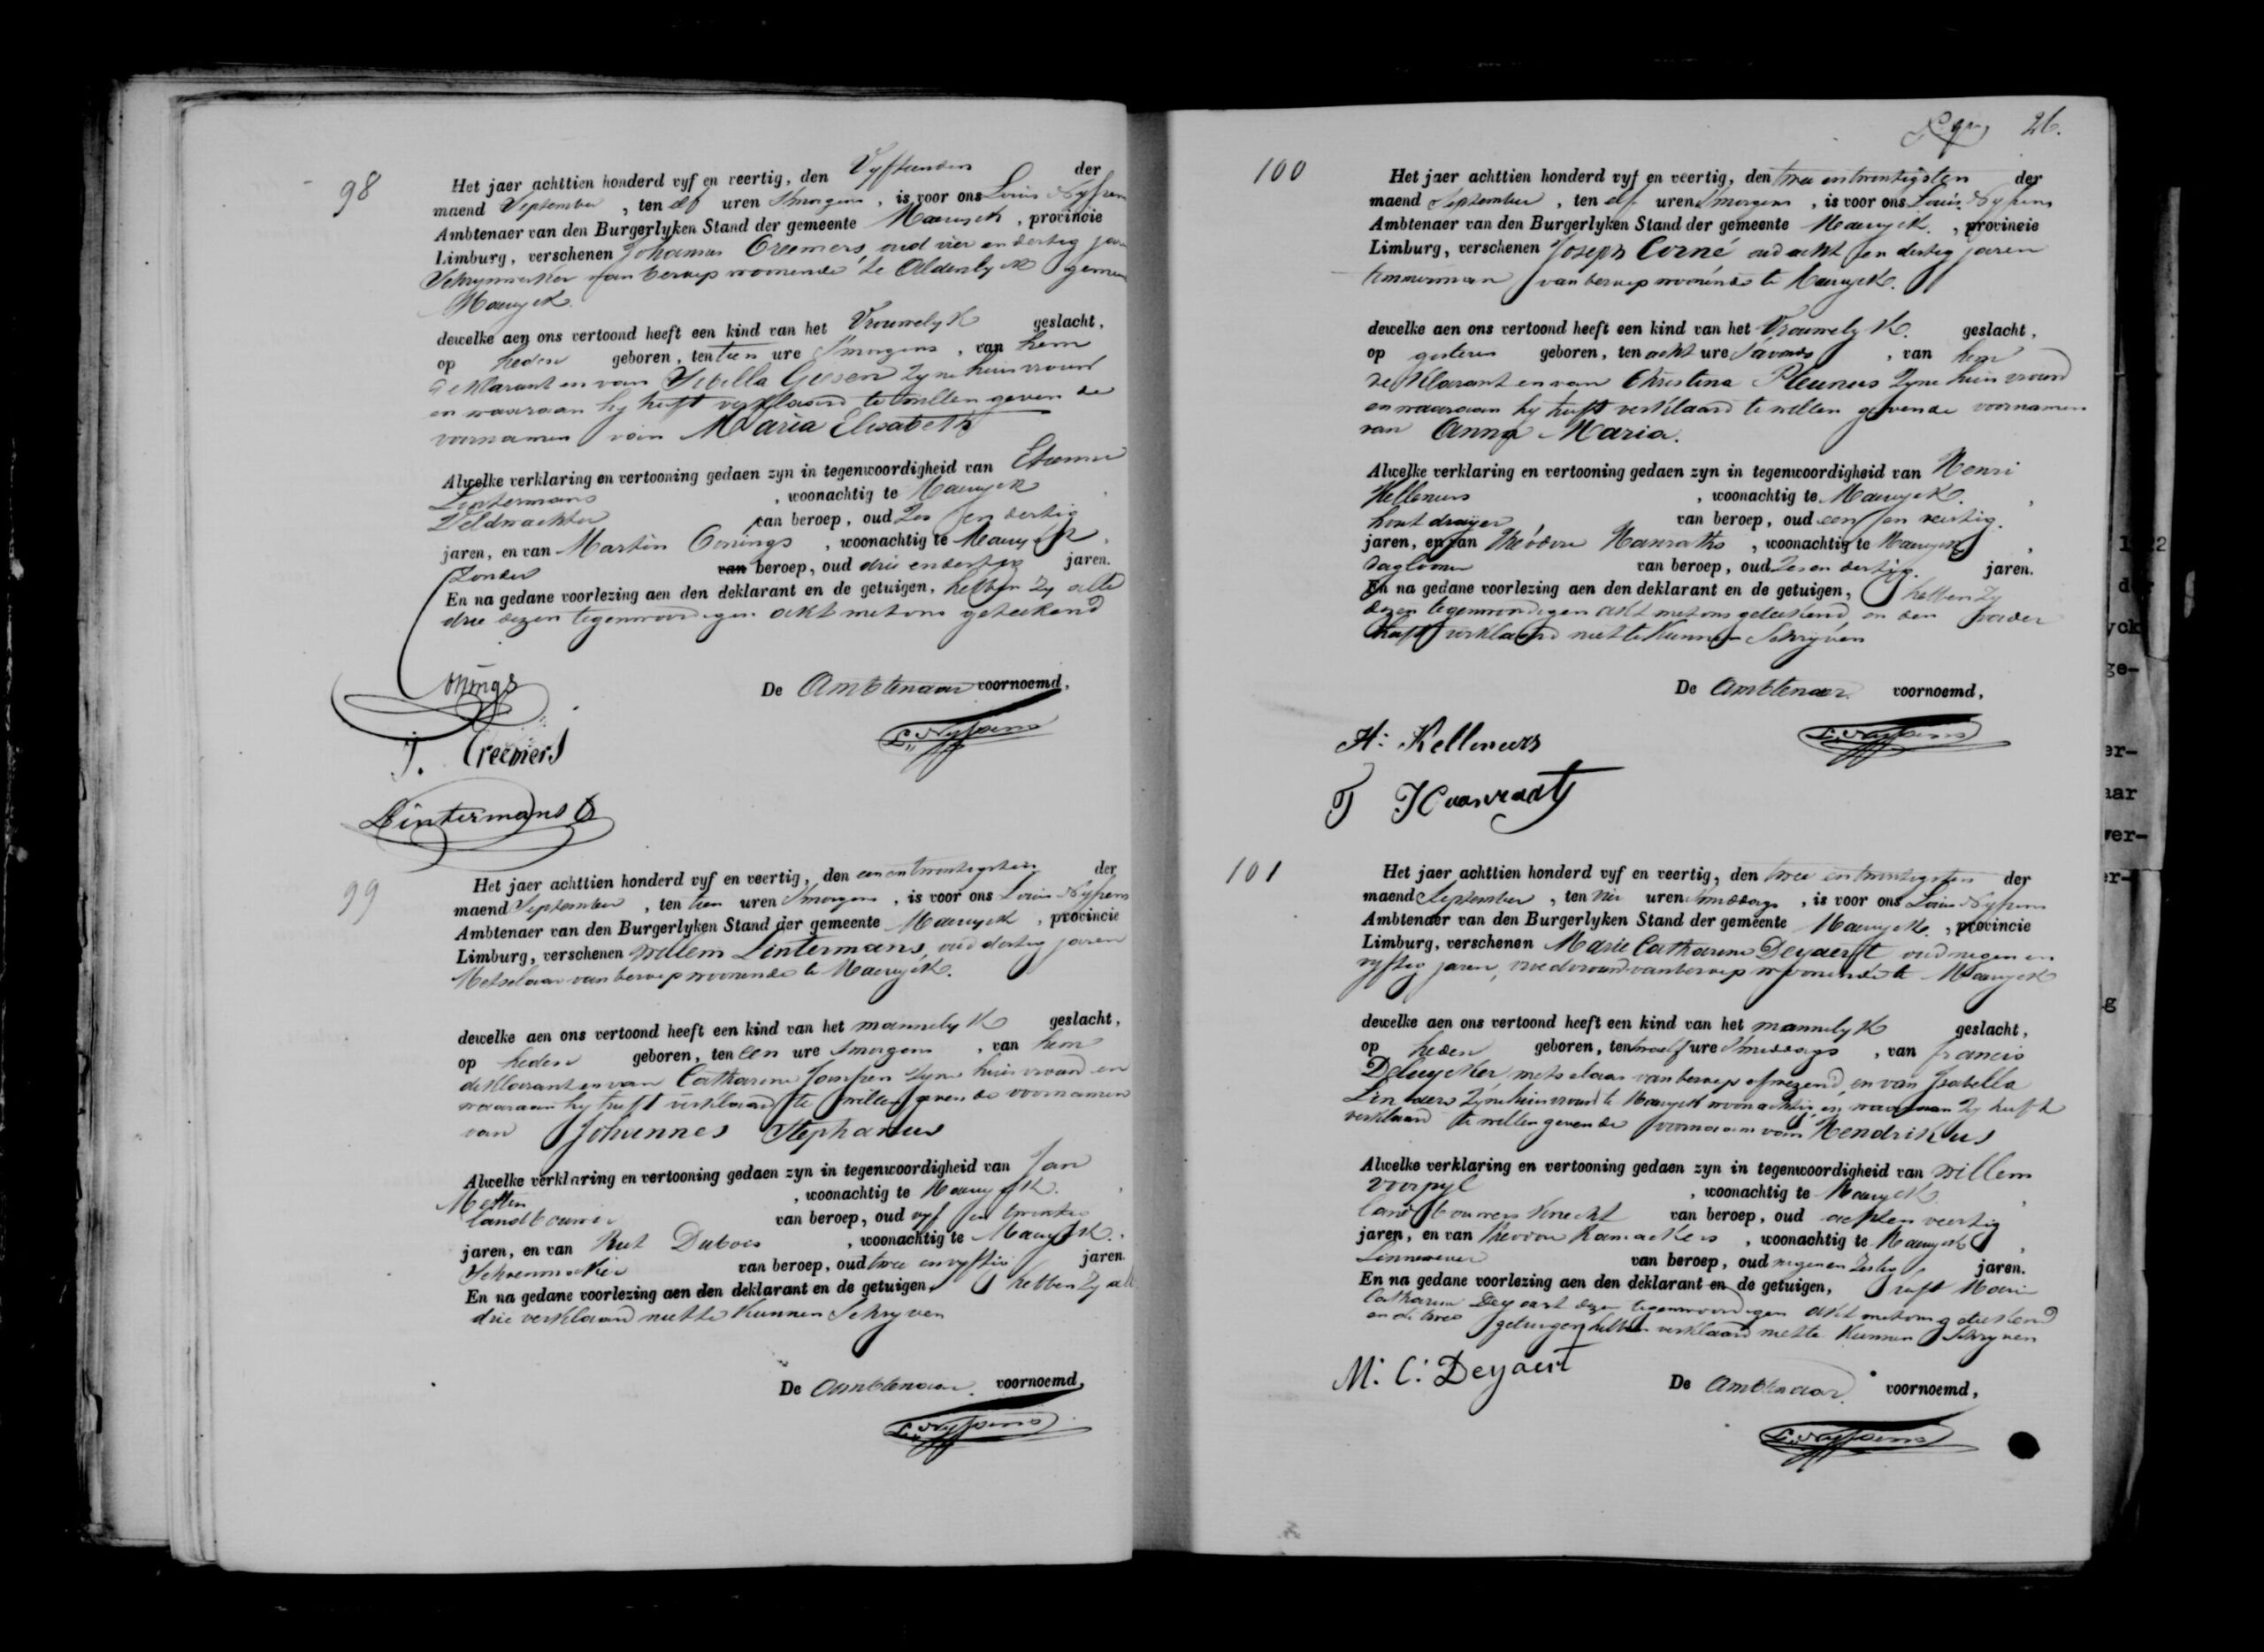 98
Het jaer achttien honderd vyf en veertig, den Vyftienden der
maend September, ten elf uren Smorgens, is voor ons Louis Nyssens
Ambtenaer van den Burgerlyken Stand der gemeente Maeseyck, provincie
Limburg, verschenen Johannes Creemers, oud vier en dertig jaren
Schrynwerker van beroep woonende te Aldeneyck gemeente
Maeseyck.
dewelke aen ons vertoond heeft een kind van het Vrouwelyk geslacht,
op heden geboren, ten tien ure Smorgens, van hem
deklarant en van Sibella Geesen zyne huisvrouw
en waaraan hy heeft verklaard te willen geven de
voornamen van Maria Elisabeth
Alwelke verklaring en vertooning gedaen zyn in tegenwoordigheid van Etienne
Lintermans, woonachtig te Maeseyck
Veldwachter van beroep, oud zes en dertig
jaren, en van Martin Conings, woonachtig te Maeseyck,
zonder beroep, oud drie en dertig jaren.
En na gedane voorlezing aen den deklarant en de getuigen, hebben zy alle
drie dezen tegenwoordigen akt met ons geteekend
De Ambtenaar voornoemd,
Conings
L. Nyssens
J. Creemers
Lintermans
99
Het jaer achttien honderd vyf en veertig, den een en twentigsten der
maend September, ten tien uren Smorgens, is voor ons Louis Nyssens
Ambtenaer van den Burgerlyken Stand der gemeente Maeseyck, provincie
Limburg, verschenen Willem Lintermans, oud dertig jaren
Metselaar van beroep woonende te Maeseyck.
dewelke aen ons vertoond heeft een kind van het mannelyk geslacht,
op heden geboren, ten een ure Smorgens, van hem
deklarant en van Catharina Janssen zyne huisvrouw en
waaraan hy heeft verklaard te willen geven de voornamen
van Johannes Stephanus
Alwelke verklaring en vertooning gedaen zyn in tegenwoordigheid van Jan
Metten, woonachtig te Maeseyck.
landbouwer van beroep, oud vyf en twintig
jaren, en van Rut Dubois, woonachtig te Maeseyck.
Schoenmaker van beroep, oud twee en vyftig jaren.
En na gedane voorlezing aen den deklarant en de getuigen, hebben zy alle
drie verklaard niet te kunnen Schryven
De Ambtenaar voornoemd,
L. Nyssens
26.
100
Het jaer achttien honderd vyf en veertig, den twee en twentigsten der
maend September, ten elf uren Smorgens, is voor ons Louis Nyssens
Ambtenaer van den Burgerlyken Stand der gemeente Maeseyck, provincie
Limburg, verschenen Joseph Corné oud acht en dertig jaren
timmerman van beroep woonende te Maeseyck.
dewelke aen ons vertoond heeft een kind van het Vrouwelyk geslacht,
op gisteren geboren, ten acht ure Savonds, van hem
deklarant en van Christina Pleunus zyne huisvrouw
en waaraan hy heeft verklaard te willen geven de voornamen
van Anna Maria.
Alwelke verklaring en vertooning gedaen zyn in tegenwoordigheid van Henri
Kelleneers, woonachtig te Maeseyck,
hout draijer van beroep, oud een en veertig
jaren, en van Théodore Hanraths, woonachtig te Maeseyck,
dagloner van beroep, oud zes en dertig jaren.
En na gedane voorlezing aen den deklarant en de getuigen, hebben zy
dezen tegenwoordigen akt met ons geteekend en den vader
heeft verklaard niet te kunnen Schryven
De Ambtenaar voornoemd,
H: Kelleneers
L. Nyssens
T Haanradts
101
Het jaer achttien honderd vyf en veertig, den twee en twentigsten der
maend September, ten vier uren Smiddags, is voor ons Louis Nyssens
Ambtenaer van den Burgerlyken Stand der gemeente Maeseyck, provincie
Limburg, verschenen Marie Catharine Deyaert oud negen en
vyftig jaren, vroedvrouw van beroep woonende te Maeseyck
dewelke aen ons vertoond heeft een kind van het mannelyk geslacht,
op heden geboren, ten twaelf ure Smiddags, van francis
Deluycker, metselaar van beroep afwezend, en van Isabella
Linders zyne huisvrouw te Maeseyck woonachtig, en waaraan zy heeft
verklaard te willen geven de voornaam van Hendrikus
Alwelke verklaring en vertooning gedaen zyn in tegenwoordigheid van Willem
Voorpyl, woonachtig te Maeseyck,
landbouwers knecht van beroep, oud acht en veertig
jaren, en van Theodor Ramackers, woonachtig te Maeseyck,
Linnewever van beroep, oud negen en zestig jaren.
En na gedane voorlezing aen den deklarant en de getuigen, heeft Marie
Catharine Deyaert dezen tegenwoordigen akt met ons geteekend
en de twee getuigen hebben verklaard niet te kunnen Schryven
M: C: Deyaert
De Ambtenaar voornoemd,
L. Nyssens